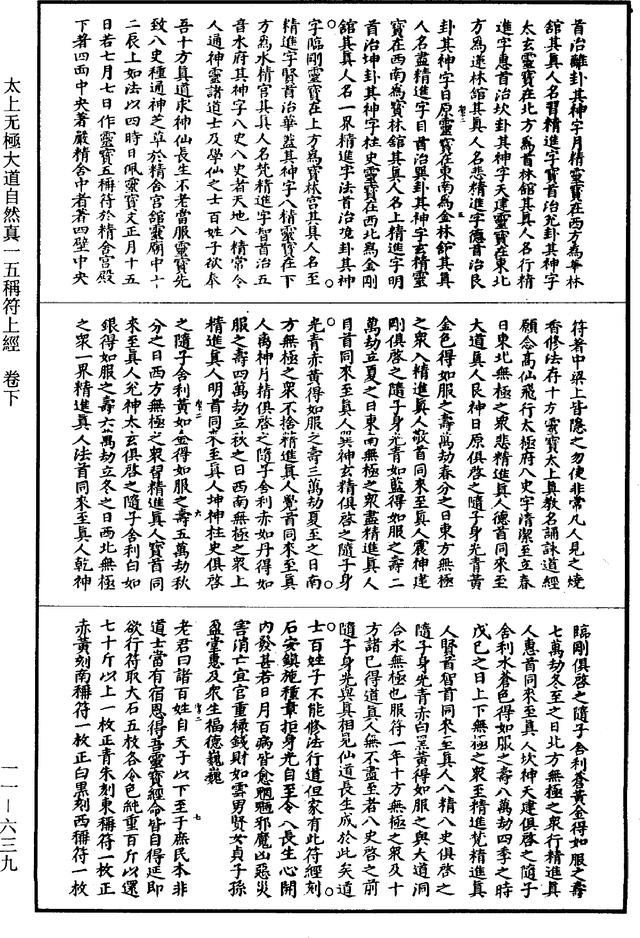 首治離卦其神字月精靈寶在西方為華林
館其真人名習精進字寶首治兌卦其神字
太玄靈寶在北方為首林館其真人名行精
進字惠首治坎卦其神字天建靈寶在東北
方為逐林館其真人名悲精進字德首治艮
卦其神字日原靈寶在東南為金林館其真
人名盡精進字目首治巽卦其神字玄精靈
寶在西南為寶林館其真人名上精進字明
首治坤卦其神字柱史靈寶在西北為金剛
館其真人名一界精進字法首治乾卦其神
字臨剛靈寶在上方為寶林宮其真人名至
精進字賢首治華蓋其神字八精靈寶在下
方為水精宮其真人名梵精進字智首治五
音水府其神字八史八史者天地八精常令
人通神靈諸道士及學仙之士百姓子欲奉
吾十方真道求神仙長生不老當服靈寶先
致八史種通神之草於精舍宮館靈廟中十
二辰上如法以四時日佩靈寶文正月十五
日若七月七日作靈寶五稱符於精舍宮殿
下著四面中央著嚴精舍中者著四壁中央
符著中梁上皆隱之勿使非常凡人見之燒
香修法存十方靈寶太上真教名誦詠道經
願念高仙飛行太極府八史字清潔至立春
日東北無極之衆悲精進真人德首同來至
大道真人艮神日原俱啓之隨子身光青黃
金色得如服之壽萬劫春分之日東方無極
之衆入精進真人敬首同來至真人震神逢
剛俱啓之隨子身光青如藍得如服之壽二
萬劫立夏之日東南無極之衆盡精進真人
目首同來至真人巽神玄精俱啓之隨子身
光青赤黃得如服之壽三萬劫夏至之日南
方無極之衆不捨精進真人覺首同來至真
人离神月精俱啓之隨子舍利赤如丹得如
服之壽四萬劫立秋之日西南無極之衆上
精進真人明首同來至真人坤神柱史俱啓
之隨子舍利黃如金得如服之壽五萬劫秋
分之日西方無極之衆習精進真人寶首同
來至真人兌神太玄俱啓之隨子舍利白如
銀得如服之壽六萬劫立冬之日西北無極
之衆一界精進真人法首同來至真人乾神
臨剛俱啓之隨子舍利蒼黃金得如服之壽
七萬劫冬至之日北方無極之衆行精進真
人惠首同來至真人坎神天建俱啓之隨子
舍利水蒼色得如服之壽八萬劫四季之時
戊己之日上下無極之衆至精進梵精進真
人賢首智首同來至真人八精八史俱啓之
隨子身光青赤白黑黃得如服之與大道洞
合永無極也服符一年十方無極之衆及十
方諸已得道真人無不盡至者八史啓之前
隨子身光與真相見仙道長生成於此矣道
士百姓子不能修法行道但家有此符經刻
石安鎮施種章拒身光自至令人長生心開
內發甚若日月百病皆愈魍魎邪魔凶惡災
害消亡宜官重祿錢財如雲男賢女貞子孫
盈堂惠及衆生福德巍巍
老君曰諸百姓自天子以下至于庶民本非
道士當有宿恩得吾靈寶經命皆自得延即
欲行符取大石五枚各令色純重百斤以還
七十斤以上一枚正青朱刻東稱符一枚正
赤黃刻南稱符一枚正白黑刻西稱符一枚
太上无極大道自然真一五稱符上經　卷下
一一—六三九